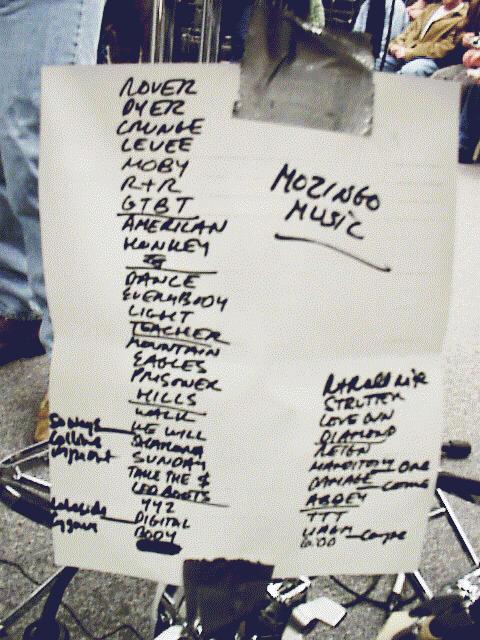 ROVER
DYER
CRUNGE
LEVEE
MOBY
R+R
GTBT
AMERICAN
HONKEY
DANCE
EVERYBODY
LIGHT
TEACHER
MOUNTAIN
EAGLES
PRISONER
HILLS
WALK
WE WILL
SUNDAY
TAKE THE $
LED BOOTS
YYZ
DIGITAL
BODY
MOZINGO
MUSIC
STRUTTER
LOVE GUN
DIAMOND
REIGN
MANDITORY ONE
DAMAGE
ABBEY
TTT
6:00